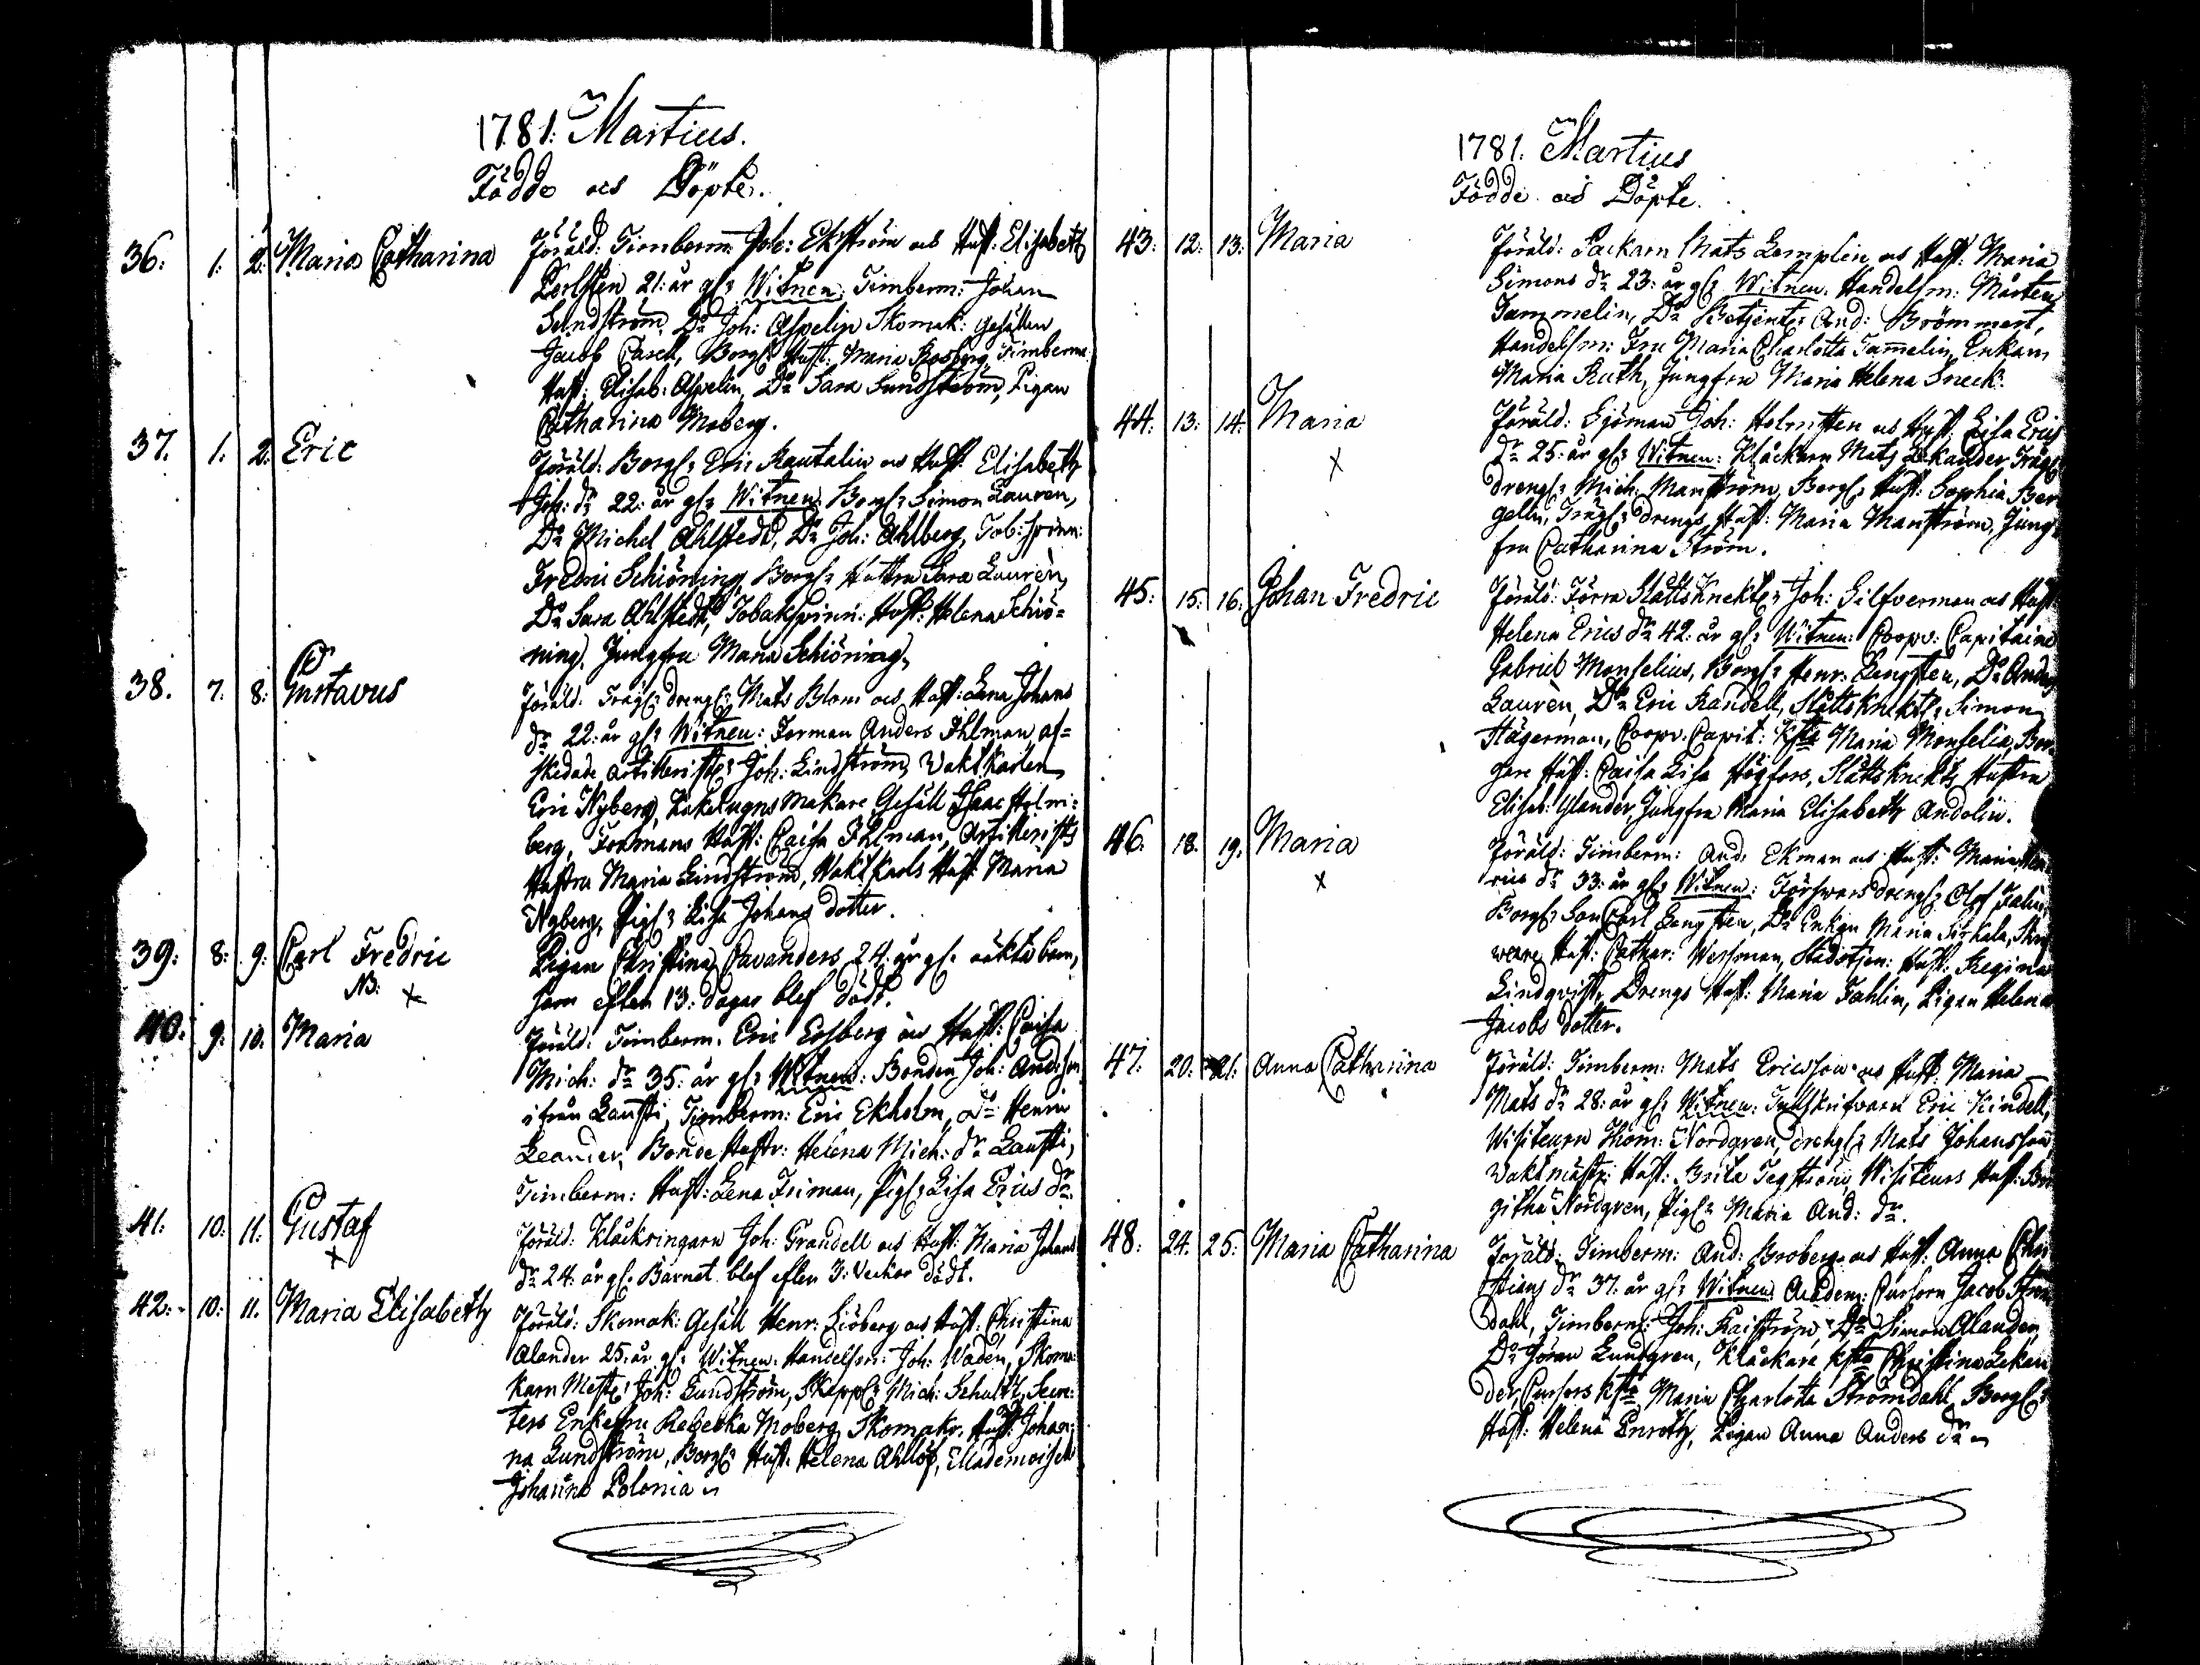 1781. Martius.
Födde och Döpte.
36. 1. 2. Maria Catharina Föräld: Timberm: Joh: Ekström och Hust: Elisabeth
21: år gl: Witnen: Timberm: Johan
Sundström, Do Joh: Aspelin Skomak: Gesällen
Jacob Casch, Borgl: Hust: Maria Rosberg, Timberm:
Hust: Elisab: Aspelin, Do Sara Sundström, Pigan
Catharina Moberg.
37. 1. 2. Eric Föräld: Borgl: Eric Rautelin och Hust: Elisabeth
Joh: dr 22: år gl: Witnen Borgl: Simon Lauren,
Do Michel Ahlstedt, Do Joh: Ahlberg, Tob: spinn:
Fredric Schiöning, Borgl: Hustru Sara Laurèn,
Do Sara Ahlstedt, Tobakspinn: Hust: Helena Schiö=
ning, Jungfru Maria Schiöning.
38. 7. 8. Gustavus Föräld: Trägl: drengl: Mats Blom och Hust: Lena Johans
dr 22: år gl: Witnen: Forman Anders Ihlman, af=
skedade Artilleristl: Joh: Lindström, Vaktkarlen
Eric Nyberg, Kakelugns makare Gesäll Isaac Holm=
berg, Formans Hust: Caisa Ihlman, Artillerists
Hustru Maria Lindström, Vaktkarls Hust: Maria
Nyberg, Pigl: Lisa Johans dotter.
39. 8. 9. Carl Fredric Pigan Christina Cavanders 24: år gl. oäkta barn,
NB: x som efter 13: dagar blef dödt.
40. 9. 10. Maria Föräld: Timberm. Eric Edsberg och Hust: Caisa
Mich: dr 35: år gl: Witnen: Bonden Joh: Anders:
ifrån Lausti, Timberm: Eric Ekholm, Do Henric
Leander, Bonde Hustr: Helena Mich: dr Lausti,
Timberm: Hust: Lena Friman, Pigl: Lisa Erics dr.
41. 10. 11. Gustaf Föräld: Klåckringarn Joh: Grandell och Hust: Maria Johans
x dr 24: år gl. Barnet blef efter 3: Veckor dödt.
42. 10. 11. Maria Elisabeth Föräld: Skomak: Gesäll Henr: Siöberg och Hust: Christina
Alander 25: år gl: Witnen: Handelsm: Joh: Wadén, Skoma
karn Mestl: Joh: Lundström, Skeppl: Mich: Schultz,
Enkefru Rebecka Moberg, Skomakr. Hust: Johan=
na Lundström, Borgl: Hust. Helena Ahllöf, Mademoisell
Johanna Polonia
1781. Martius
Födde och Döpte.
43. 12. 13. Maria Föräld: Packarn Mats Lamplin och Hust: Maria
Simons dr 23: år gl: Witnen. Handelsm: Mårten
Tammelin, Do Betjent: And: Brömmert,
Handelsm: Fru Maria Charlotta Tammelin, Enkan
Maria Ruth, Jungfru Maria Helena Sneck.
44. 13. 14. Maria Föräld: Sjöman Joh: Holmsten och Hust: Lisa Erics
x dr 25: år gl: Witnen: Klåckarn Mats Lekander, Trägl:
drengl: Mich: Manström, Borgl: Hust: Sophia Ber
gelin, Trägl: drengs Hust: Maria Manström, Jung
fru Catharina Ström.
45. 15. 16. Johan Fredric Föräld: Förra Slåttsknektl: Joh: Silfverman och Hust:
Helena Erics dr 42: år gl: Witnen: Coopv: Capitaine
Gabriel Monselius, Borgl: Henr: Lengsten, Do Anders
Laurèn, Do Eric Randell, Slåttsknektl: Simon
Hägerman, Coopv. Capit: Ksta Maria Monselia, Bor
gare Hust: Caisa Lisa Högfors, Slåttsknekts Hustru
Elisab: Ylander, Jungfru Maria Elisabeth Andolin.
46. 18. 19. Maria Föräld: Timberm: And: Ekman och Hust: Maria Hen
x rics dr 33: år gl: Witnen: Försvars drengl: Olof Falin,
Borgl: Son Carl Lengsten, Do Enkan Maria Sirkala, Skri
ware Hust: Cathar: Wessman, Stadstjen: Hust: Regina
Lindqvist, Drengs Hust: Maria Fahlin, Pigan Helena
Jacobs dotter.
47. 20. 21. Anna Catharina Föräld: Timberm: Mats Ericsson och Hust: Maria
Mats dr 28: år gl: Witnen: Tullskrifvaren Eric Kindell,
Visiteurn Thom: Nordgren, drengl: Mats Johansson
Vaktmäst: Hust: Brita Tegström, Visiteurs Hust: Bir
githa Nordgren, Pigl: Maria And: dr.
48. 24. 25. Maria Catharina Föräld: Timberm: And: Broberg och Hust: Anna Chri
stians dr 37: år gl: Witnen Academ: Cursorn Jacob Ström
dahl, Timberm: Joh: Kaiström, Do Simon Alander,
Do Jöran Lundgren, Klåckare Ksta Christina Lekan
der, Cursors Ksta Maria Charlotta Strömdahl, Borgl:
Hust: Helena Enroth, Pigan Anna Anders dr